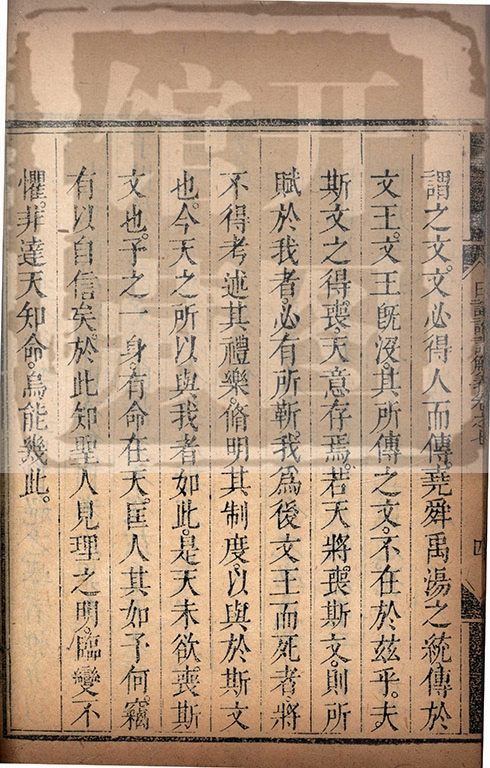 日講四書解義卷之七
四
謂之文。文必得人而傳。堯舜禹湯之統傳於
文王。文王旣沒。其所傳之文。不在於茲乎。夫
斯文之得喪。天意存焉。若天將喪斯文。則所
賦於我者。必有所靳。我爲後文王而死者。將
不得考述其禮樂。脩明其制度。以與於斯文
也。今天之所以與我者如此。是天未欲喪斯
文也。予之一身。有命在天。匡人其如予何。竊
有以自信矣。於此知聖人見理之明。臨變不
懼。非達天知命。烏能幾此。